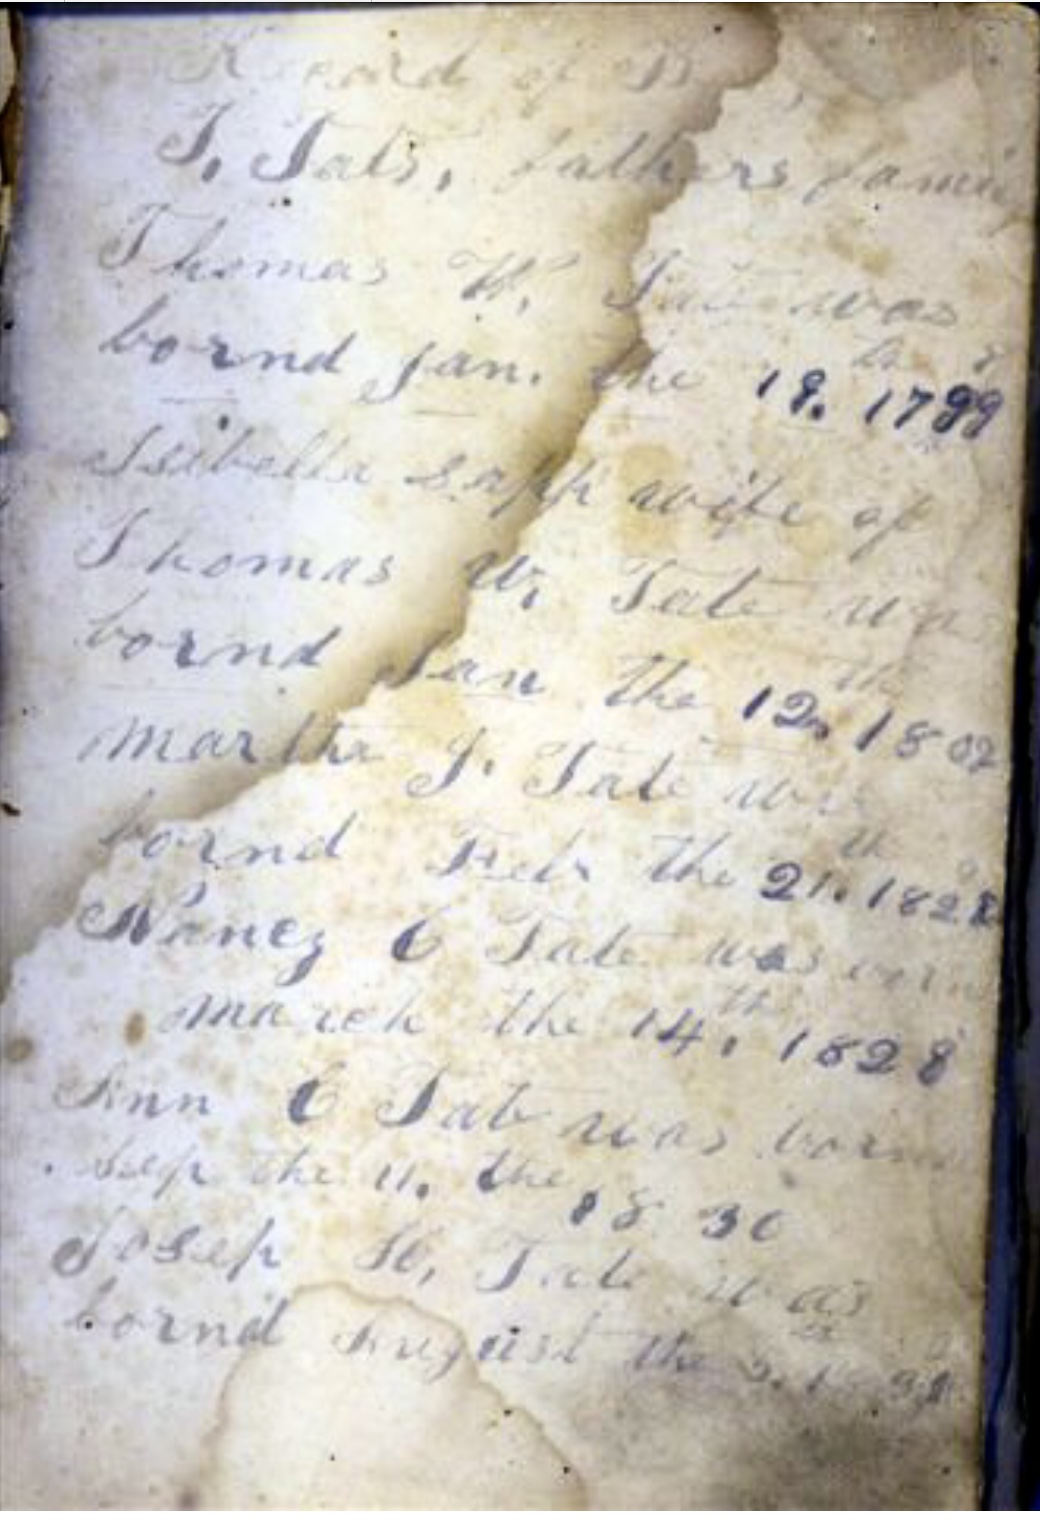 Record of B
T. Tats, fathers fami
Thomas W. Tate was
bornd Jan. the 19. 1799
Isibella sapp wife of
Thomas W. Tate was
bornd Jan the 12th. 1802
Martha J. Tate was
bornd Feb the 21. 182
Nancy C Tate was
march the 14th. 1828
Ann C Tate was born
Sep the 11. the 18 30
Josep H, Tate was
bornd August the